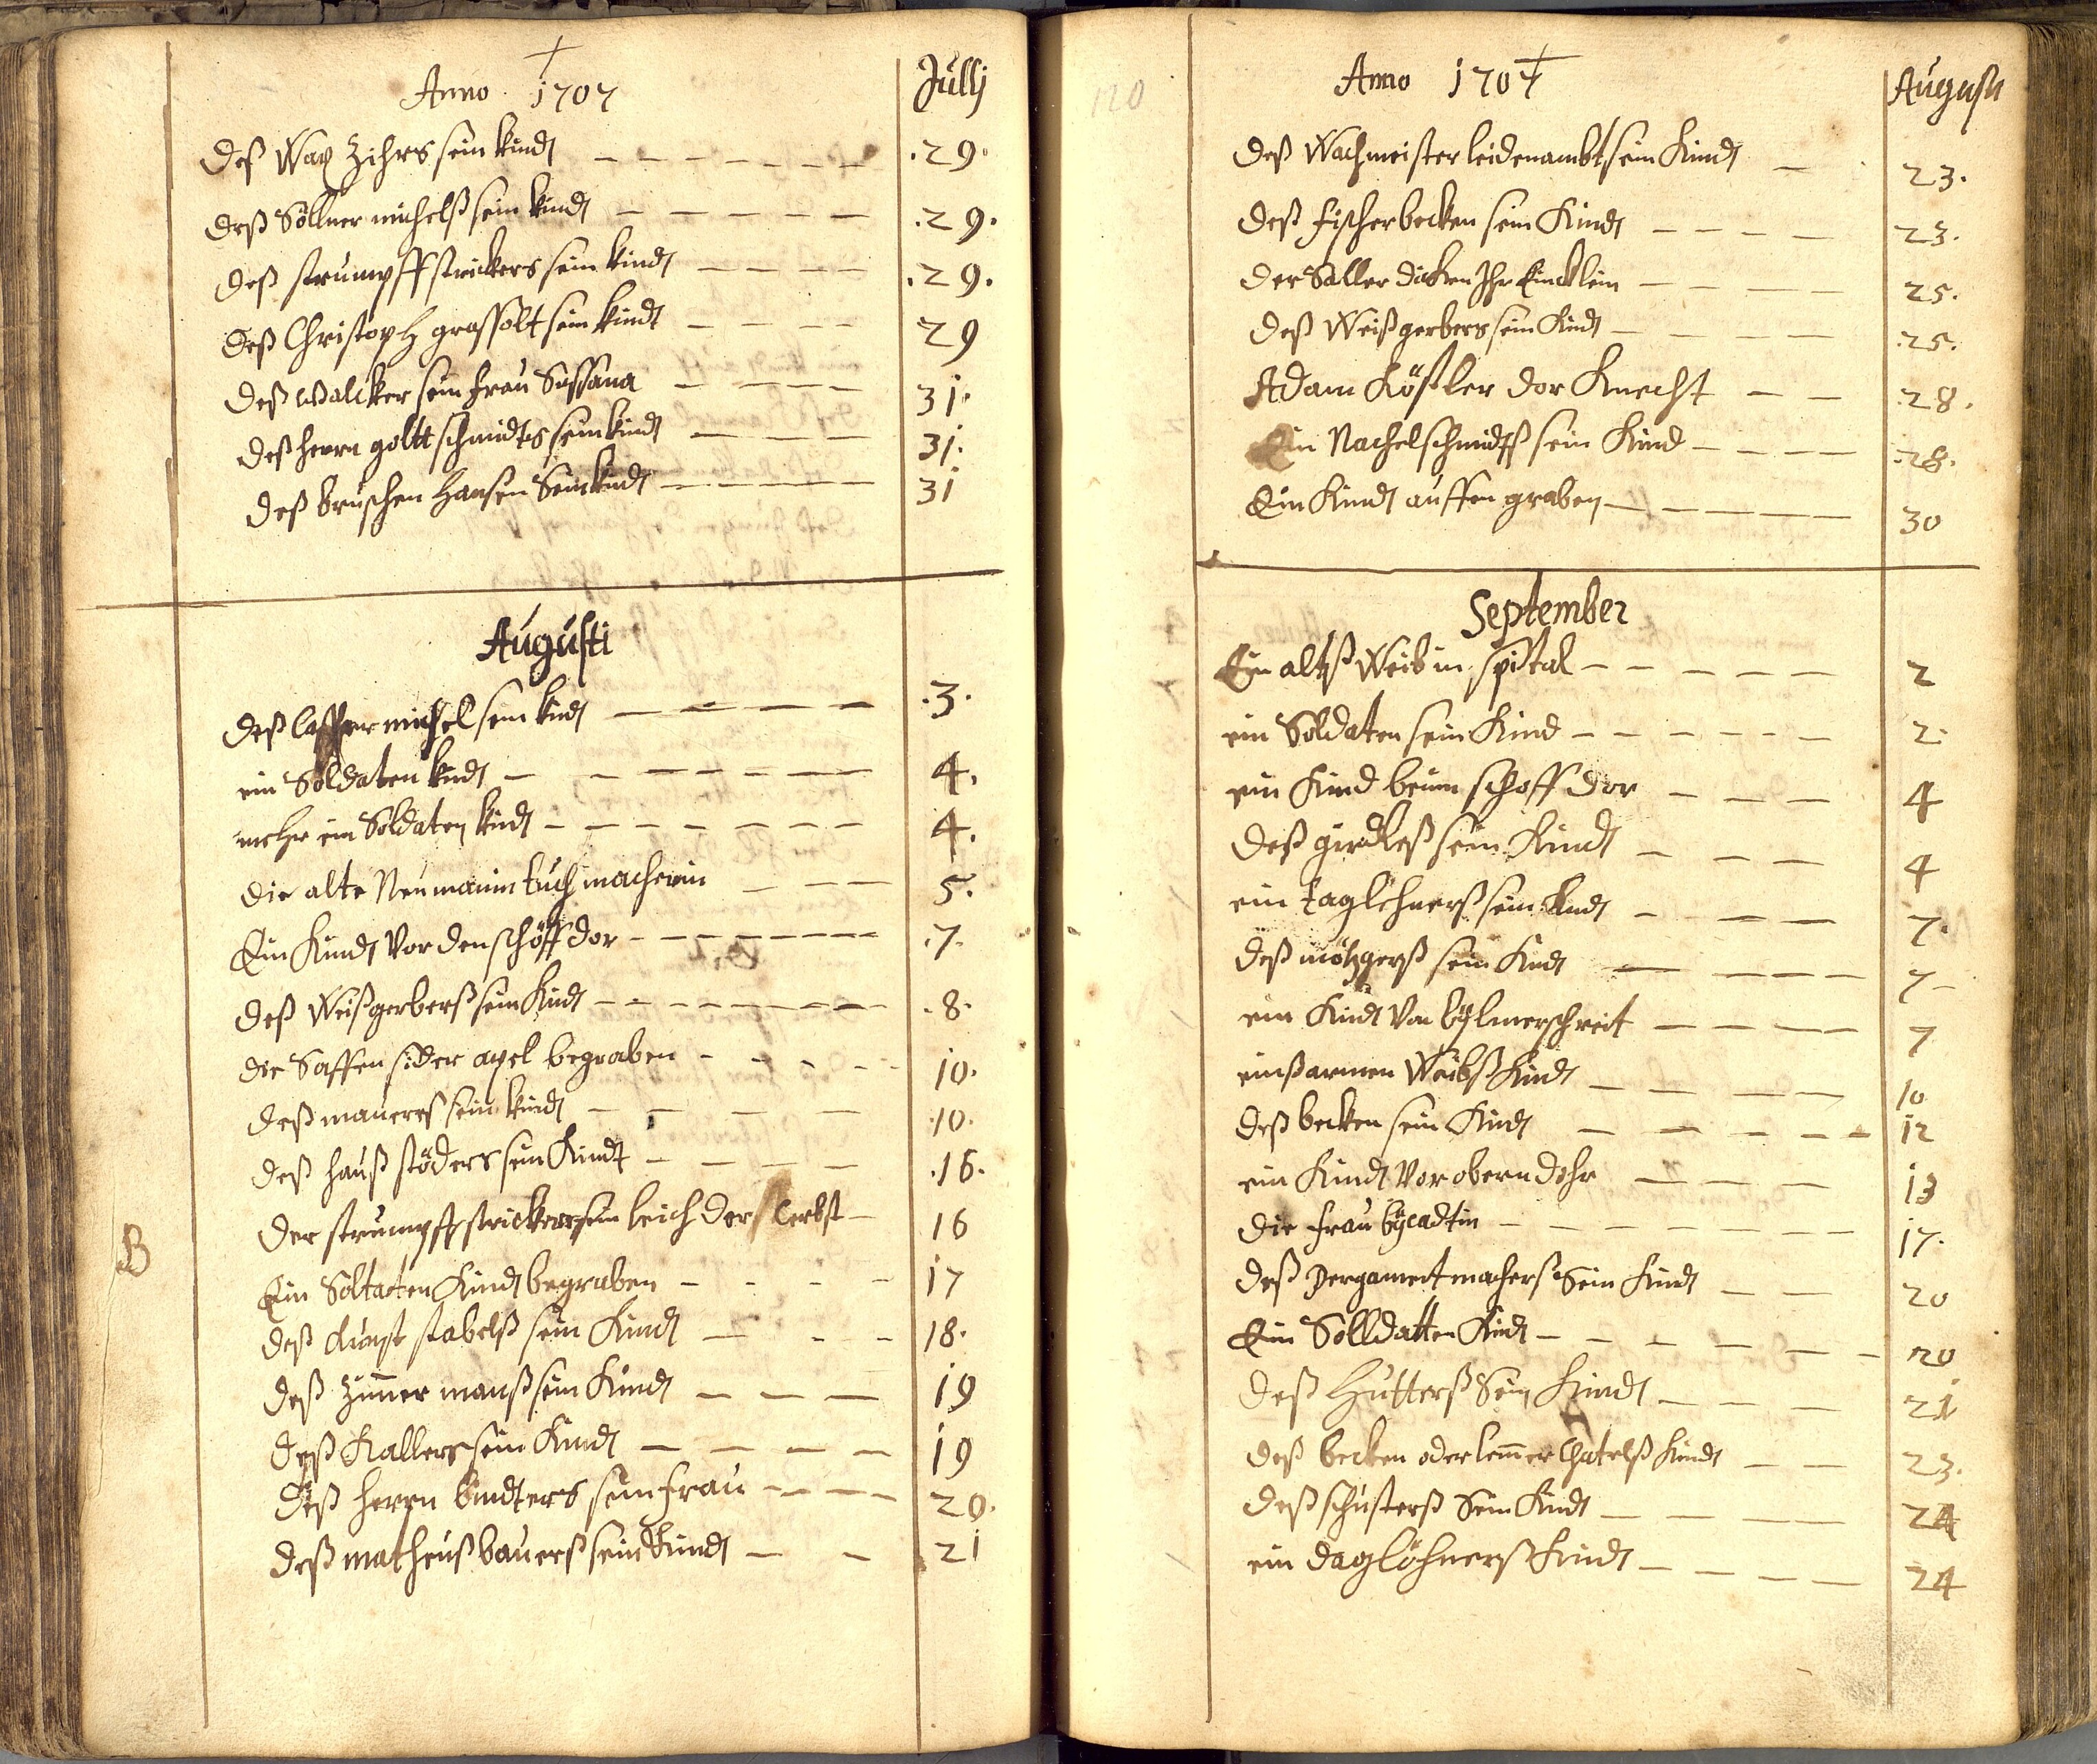 Anno 1707 Jullj
Deß Wax Zihers sein kindt .29.
Deß Söllner michelß sein kindt .29.
Deß strumpff strickers sein kindt .29.
Deß Christoph grassolt sein kindt 29
Deß walcker sein frau Sussana 31.
Deß herrn goltt schmidts sein kindt 31.
Deß bruschen Hansen Sein kindt 31
Augusti
Deß michel sein kindt .3.
ein Soldaten kindt 4.
mehr ein Soldaten kindt 4.
die alte Neümanin tuchmacherin 5.
Ein Kindt Vor den schöff dor .7.
Deß Weißgerberß sein Kindt .8.
die Saffensider apel begraben 10.
Deß maurers sein kindt .10.
Deß hauß stöders sein Kindt .16.
Der strumpff strickers sein leich der 16
B
Ein Soltaten Kindt begraben 17
Deß Kunst stabelß sein Kindt 18.
Deß Zimer manß sein Kindt 19
Deß Kallers sein Kindt 19
Deß herrn bindters sein frau 20.
Deß matheuß bauerß sein Kindt 21
120
Anno 1707 Augusti
Deß Wachmeister leidenambt sein Kindt 23.
Deß fischerbecken sein Kindt 23.
Der Saller dicken Ihr Eincklein 25.
Deß Weißgerbers sein Kindt .25.
Adam Rößler dor Knecht .28.
Ein Nachelschmidtß sein Kind .28.
Ein Kindt auffen graben 30
September
Ein altß Weib in spital 2
ein Soldaten sein Kind 2.
ein Kind beim schoff dor 4
Deß girdleß sein Kindt 4
ein taglehnerß sein Kindt 7.
Deß mötzgerß sein Kindt 7
ein Kindt Von 7
einß armen Weibß Kindt 10
Deß becken sein Kindt 12
ein Kindt Vor obern dohr 13
die frau 17.
Deß Pergamentmacherß Sein Kindt 20
Ein Solldatten Kindt 20
Deß Hutterß Sein Kindt 21
Deß becken oder Kindt 23.
Deß schusterß Sein Kindt 24
ein daglöhnerß Kindt 24